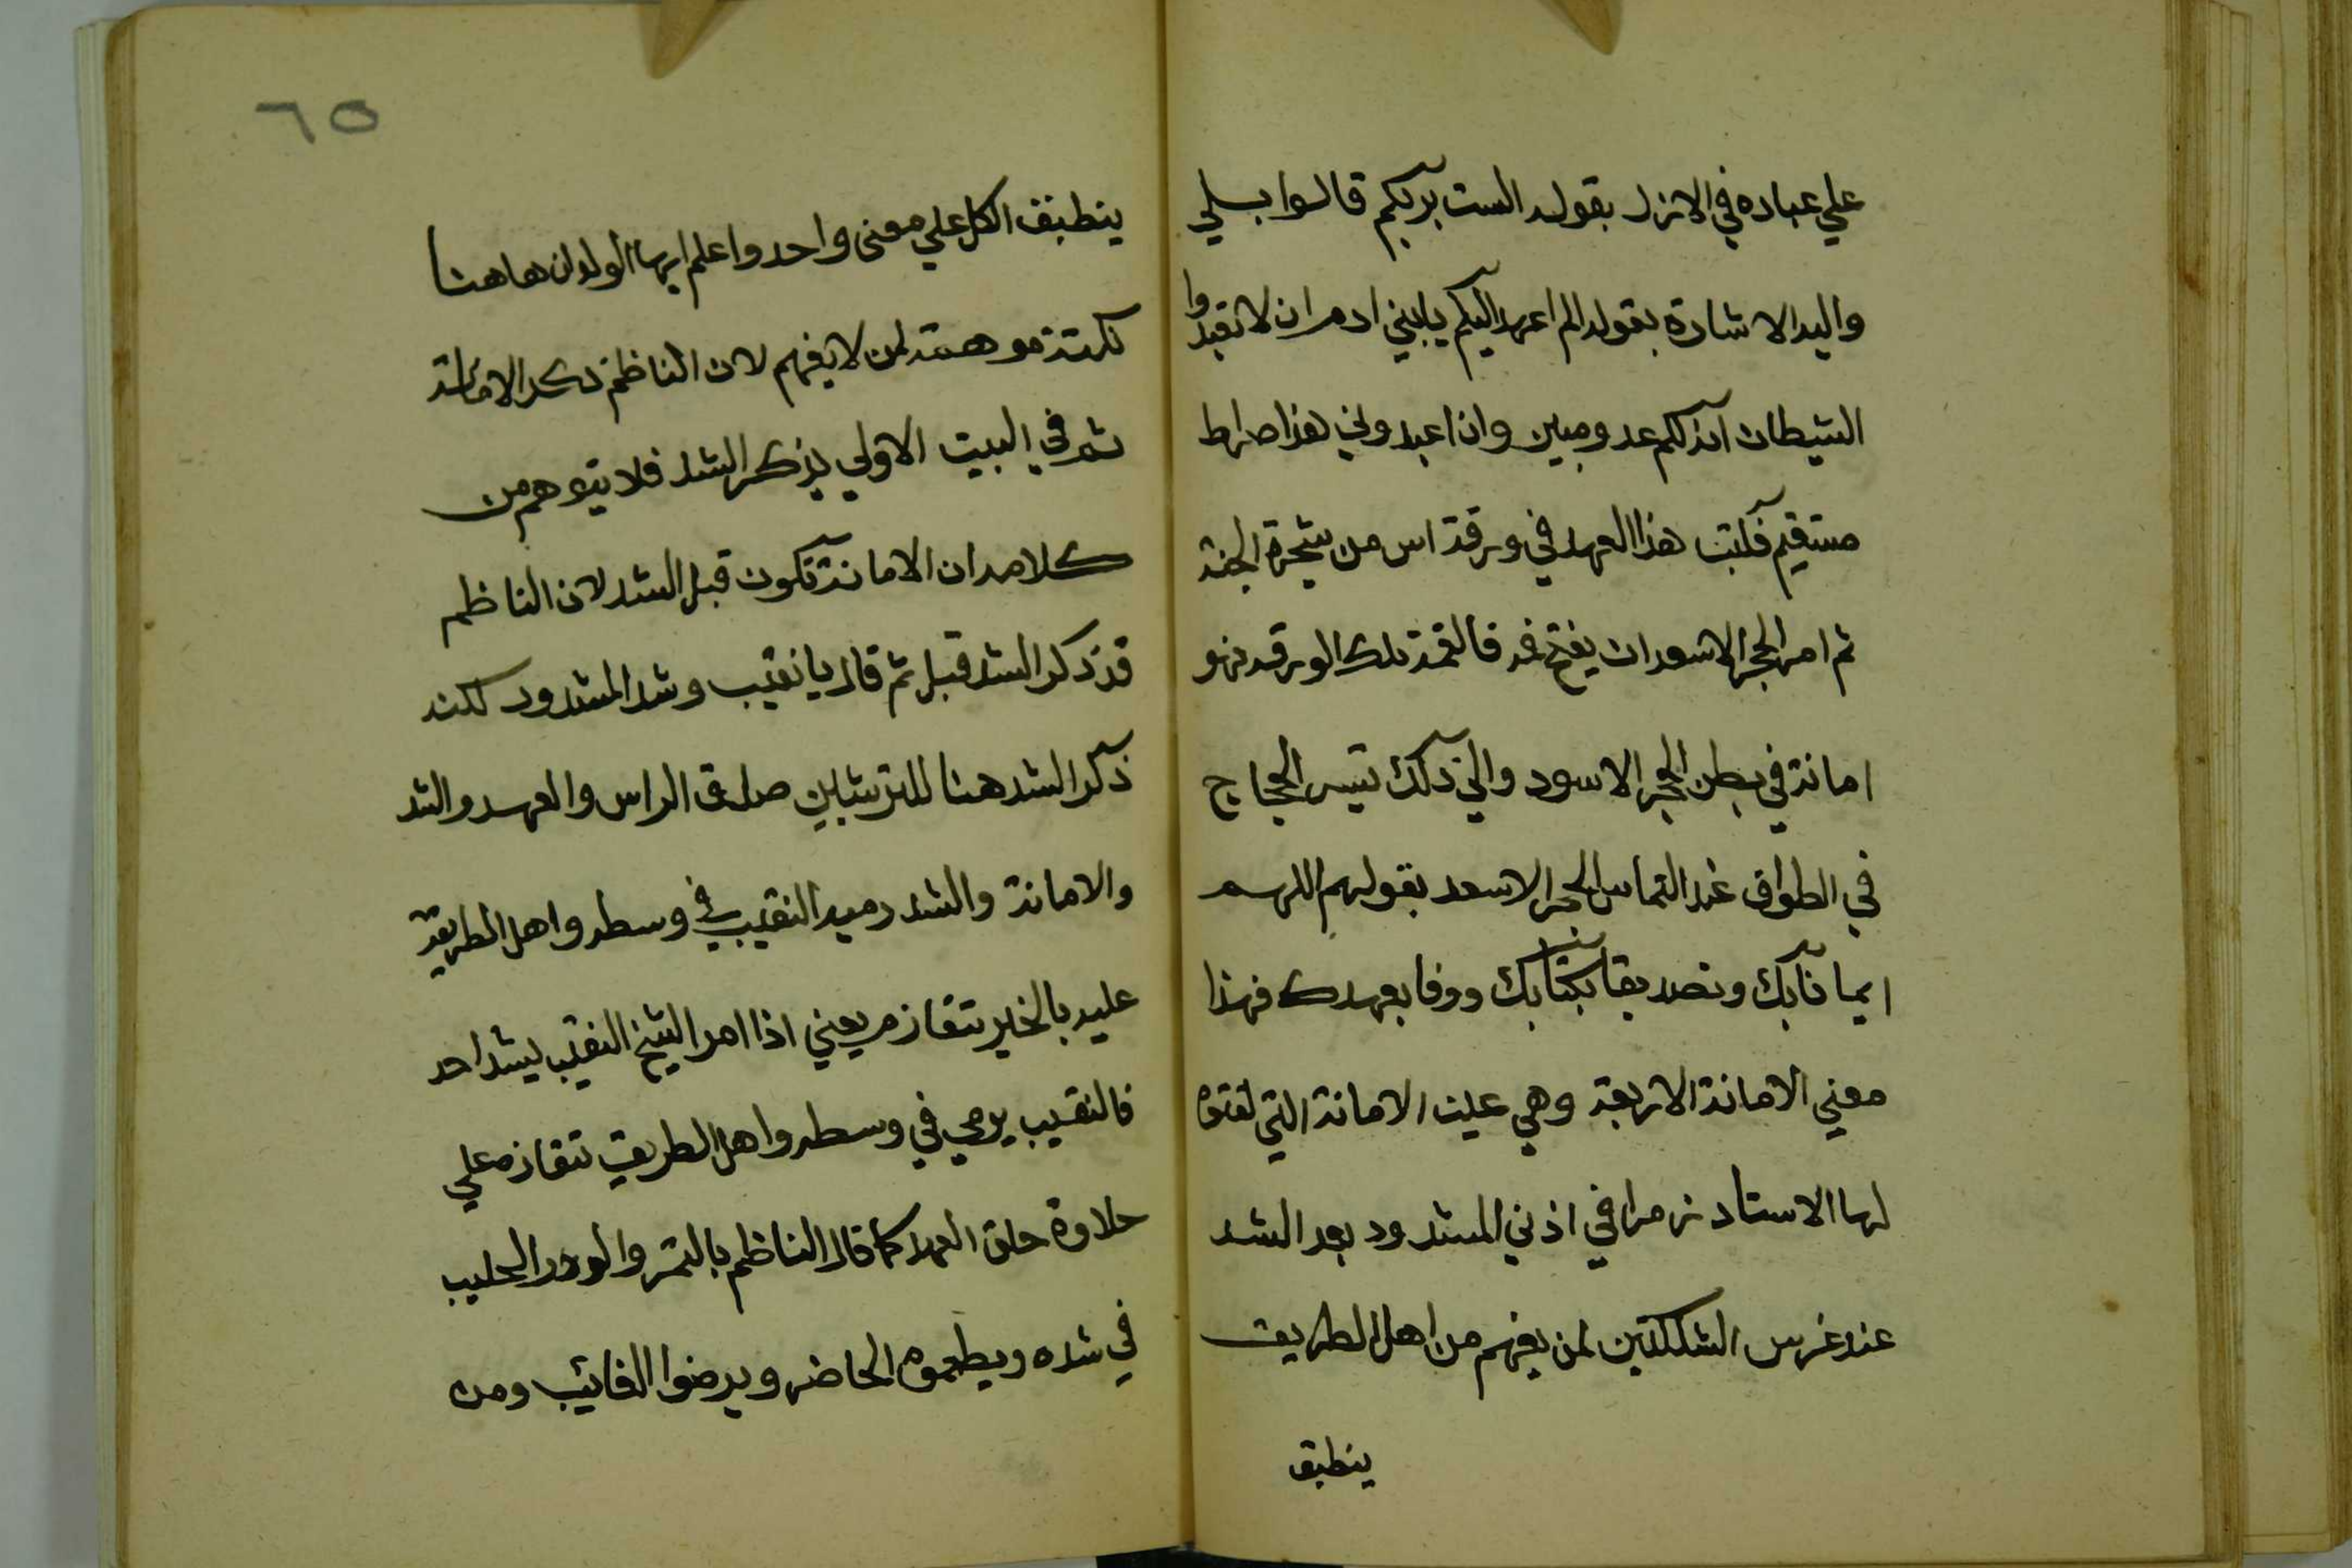 علي عباده في الازل بقوله الست بربكم قالوا بلي
واليه الاشارة بقوله الم اعهد اليكم يابني ادم ان لا تعبدوا
الشيطان انه لكم عدو مبين وان اعبدوني هذا صراط
مستقيم فكتب هذا العهد في ورقة اس من شجرة الجنة
ثم امر الحجر الاسود ان يفتح فمه فالقمه تلك الورقة فهو
امانة في بطن الحجر الاسود والي ذلك تيسر الحجاج
في الطواف عند التماس الحجر الاسعد بقولهم اللهم
ايمانا بك وتصديقا بكتابك ووفا بعهدك فهذا
معني الامانة الاربعة وهي عين الامانة التي
لها الاستاد زمرا في اذني المشدود بعد الشد
عند غرس الشكلتين لمن يفهم من اهل الطريق
ينطبق
٦٥
ينطبق الكل علي معني واحد واعلم ايها الولد ان هاهنا
نكتة موهمة لمن لا يفهم لان الناظم ذكر الامانة
ثم في البيت الاولي يذكر الشد فلا يتوهم من
كلامه ان الامانة تكون قبل الشد لان الناظم
قد ذكر الشد قبل ثم قال يا نقيب وشد المشدود لكنه
ذكر الشد هنا للترتيب حلق الراس والعهد والشد
والامانة والشد رميه النقيب في وسطه واهل الطريقة
عليه بالخير تتقازم يعني اذا امر الشيخ النقيب يشد احد
فالنقيب يرمي في وسطه واهل الطريق تتقازم علي
حلاوة حلق العهد كما قال الناظم بالتمر والورد الحليب
في شده ويطعموه الحاضر ويرضوا الغائب ومن